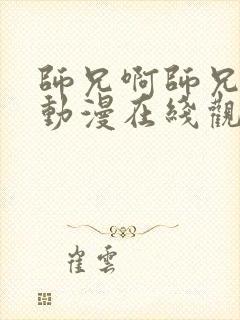 師兄啊師兄
動漫在綫觀
崔雲